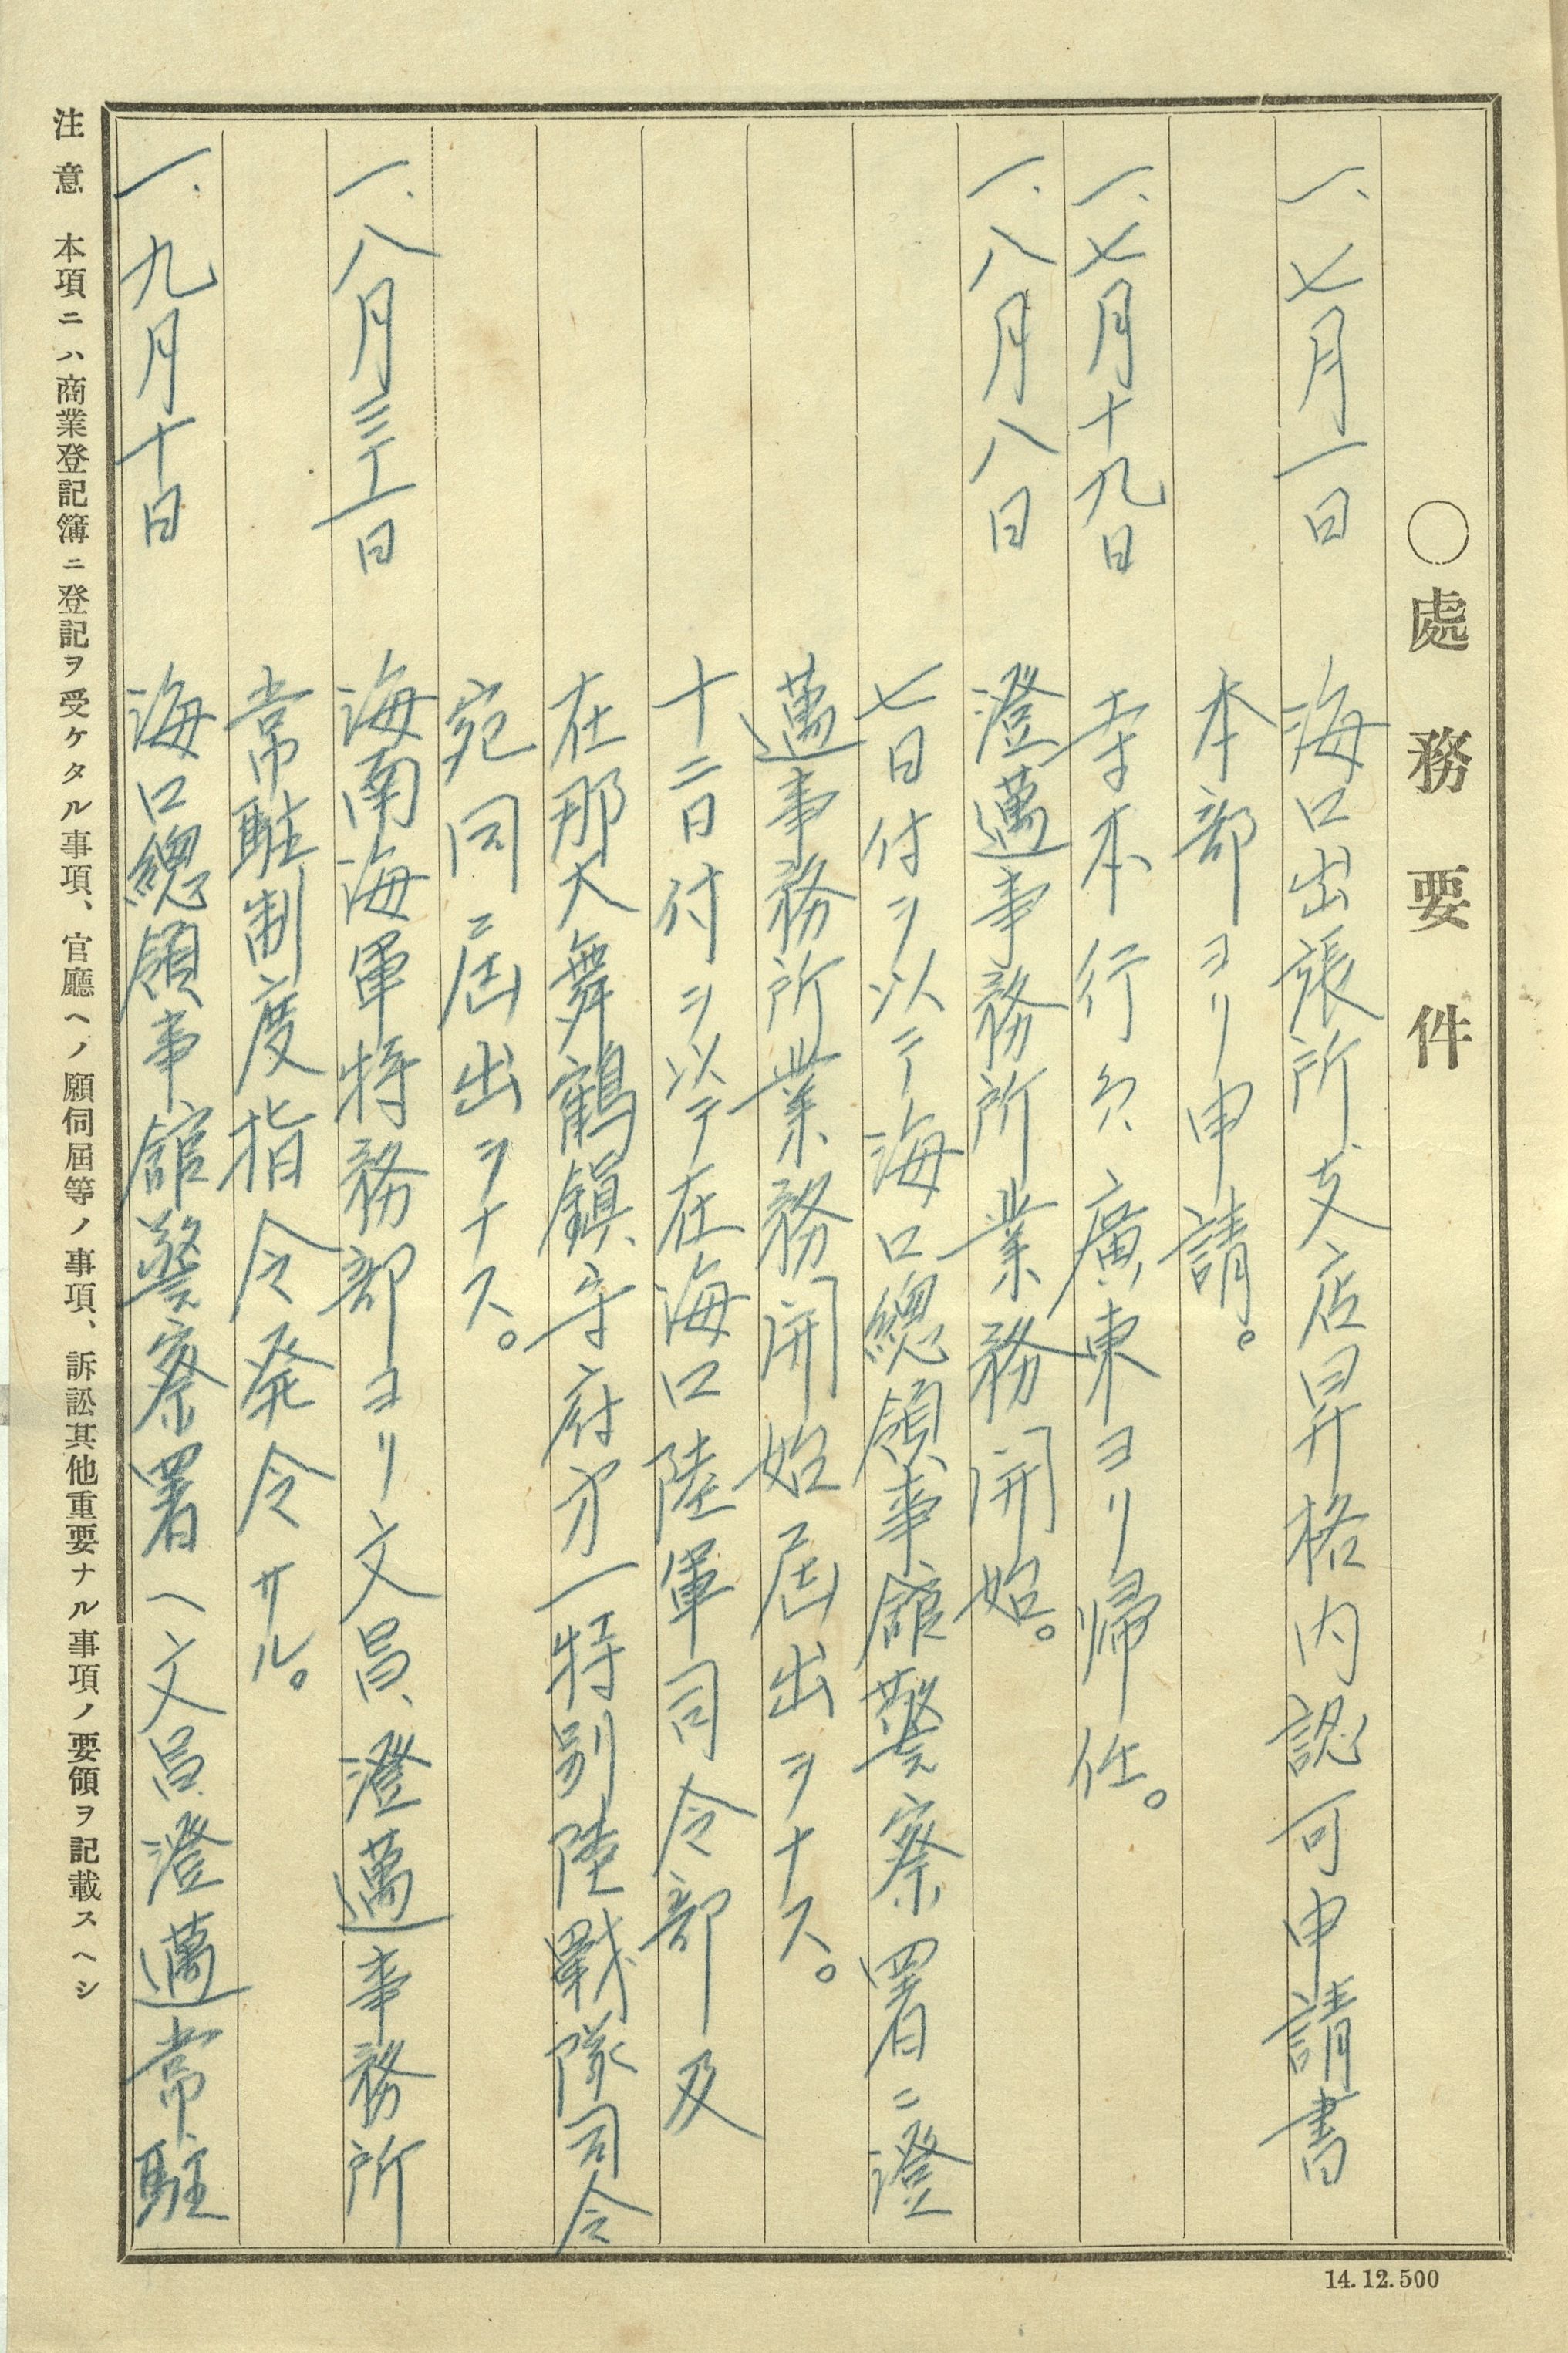 ○處務要件
一、七月一日 海口出張所、支店昇格内認可申請書
本部ヨリ申請。
一、七月十九日 寺本行員、廣東ヨリ帰任。
一、八月八日 澄邁事務所業務開始。
七日付ヲ以テ海口總領事館警察署ニ澄
邁事務所業務開始屆出ヲナス。
十二日付ヲ以テ在海口陸軍司令部及
在那大舞鶴鎮守府第一特別陸戰隊司令
宛同ニ屆出ヲナス。
一、八月三十一日 海南海軍特務部ヨリ文昌、澄邁事務所
常駐制度指令発令サル。
一、九月十日 海口總領事館警察署ヘ文昌、澄邁常駐
注意 本項ニハ商業登記簿ニ登記ヲ受ケタル事項、官廳ヘノ願伺屆等ノ事項、訴訟其他重要ナル事項ノ要領ヲ記載スヘシ
14.12.500